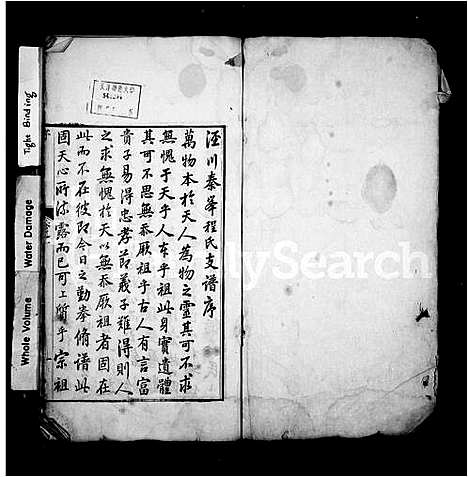 涇川秦峯程氏支譜序
萬物本於天人為物之靈其可不求
無愧于天乎人本乎祖此身實遺體
其可不思無忝厥祖乎古人有言富
貴子易得忠孝節義子難得則人
之求無愧於天以無忝厥祖者固在
此而不在彼即今日之勤奉脩譜此
固天心所流露而已可工質乎宗祖
Tight Binding
Water Damage
Whole Volume
lySearch